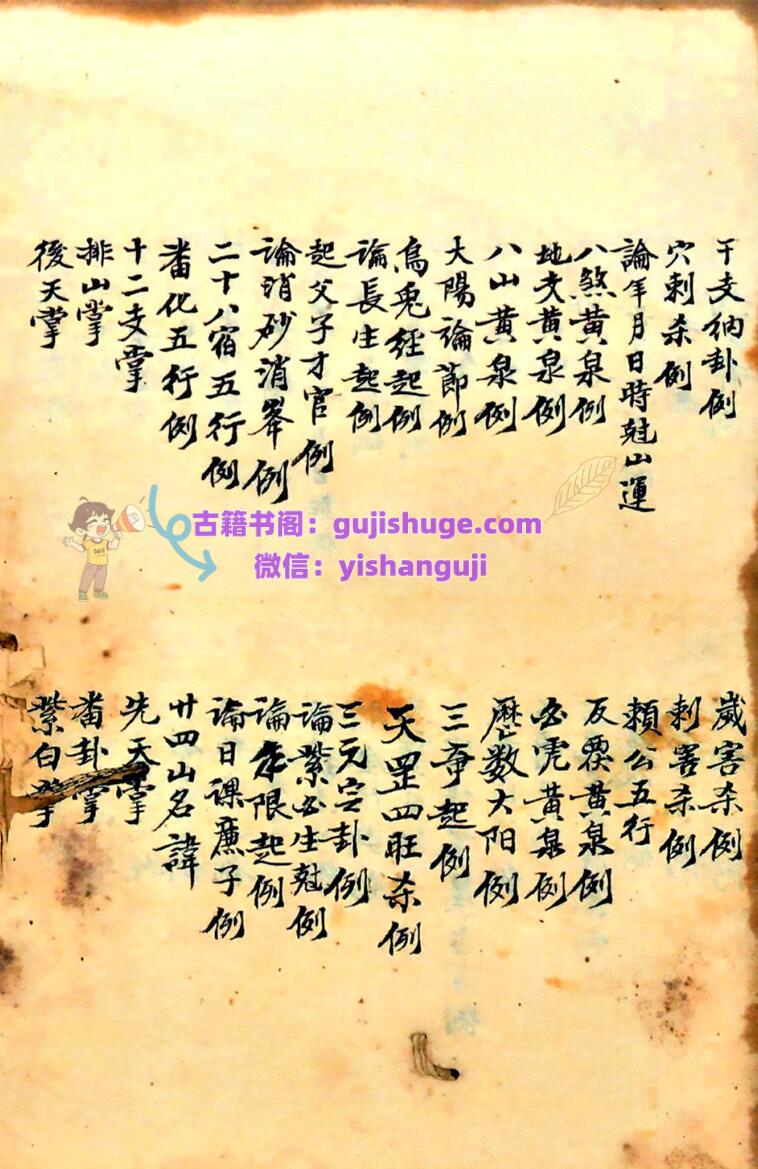 干支纳卦例
穴刺杀例
論年月日時尅山運
八煞黄泉例
地支黄泉例
八山黄泉例
大陽論節例
烏兎經起例
論長生起例
起父子才官例
論消砂消峯例
二十八宿五行例
畨化五行例
十二支掌
排山掌
後天掌
古籍书阁：gujishuge.com
微信：yishanguji
歲害杀例
刺害杀例
頼公五行
反覂黄泉例
白虎黄泉例
歷数大阳例
三奇起例
天罡四旺杀例
三元空卦例
論紫白生尅例
論年限起例
論日課廉子例
廿四山名諱
先天掌
畨卦掌
紫白掌